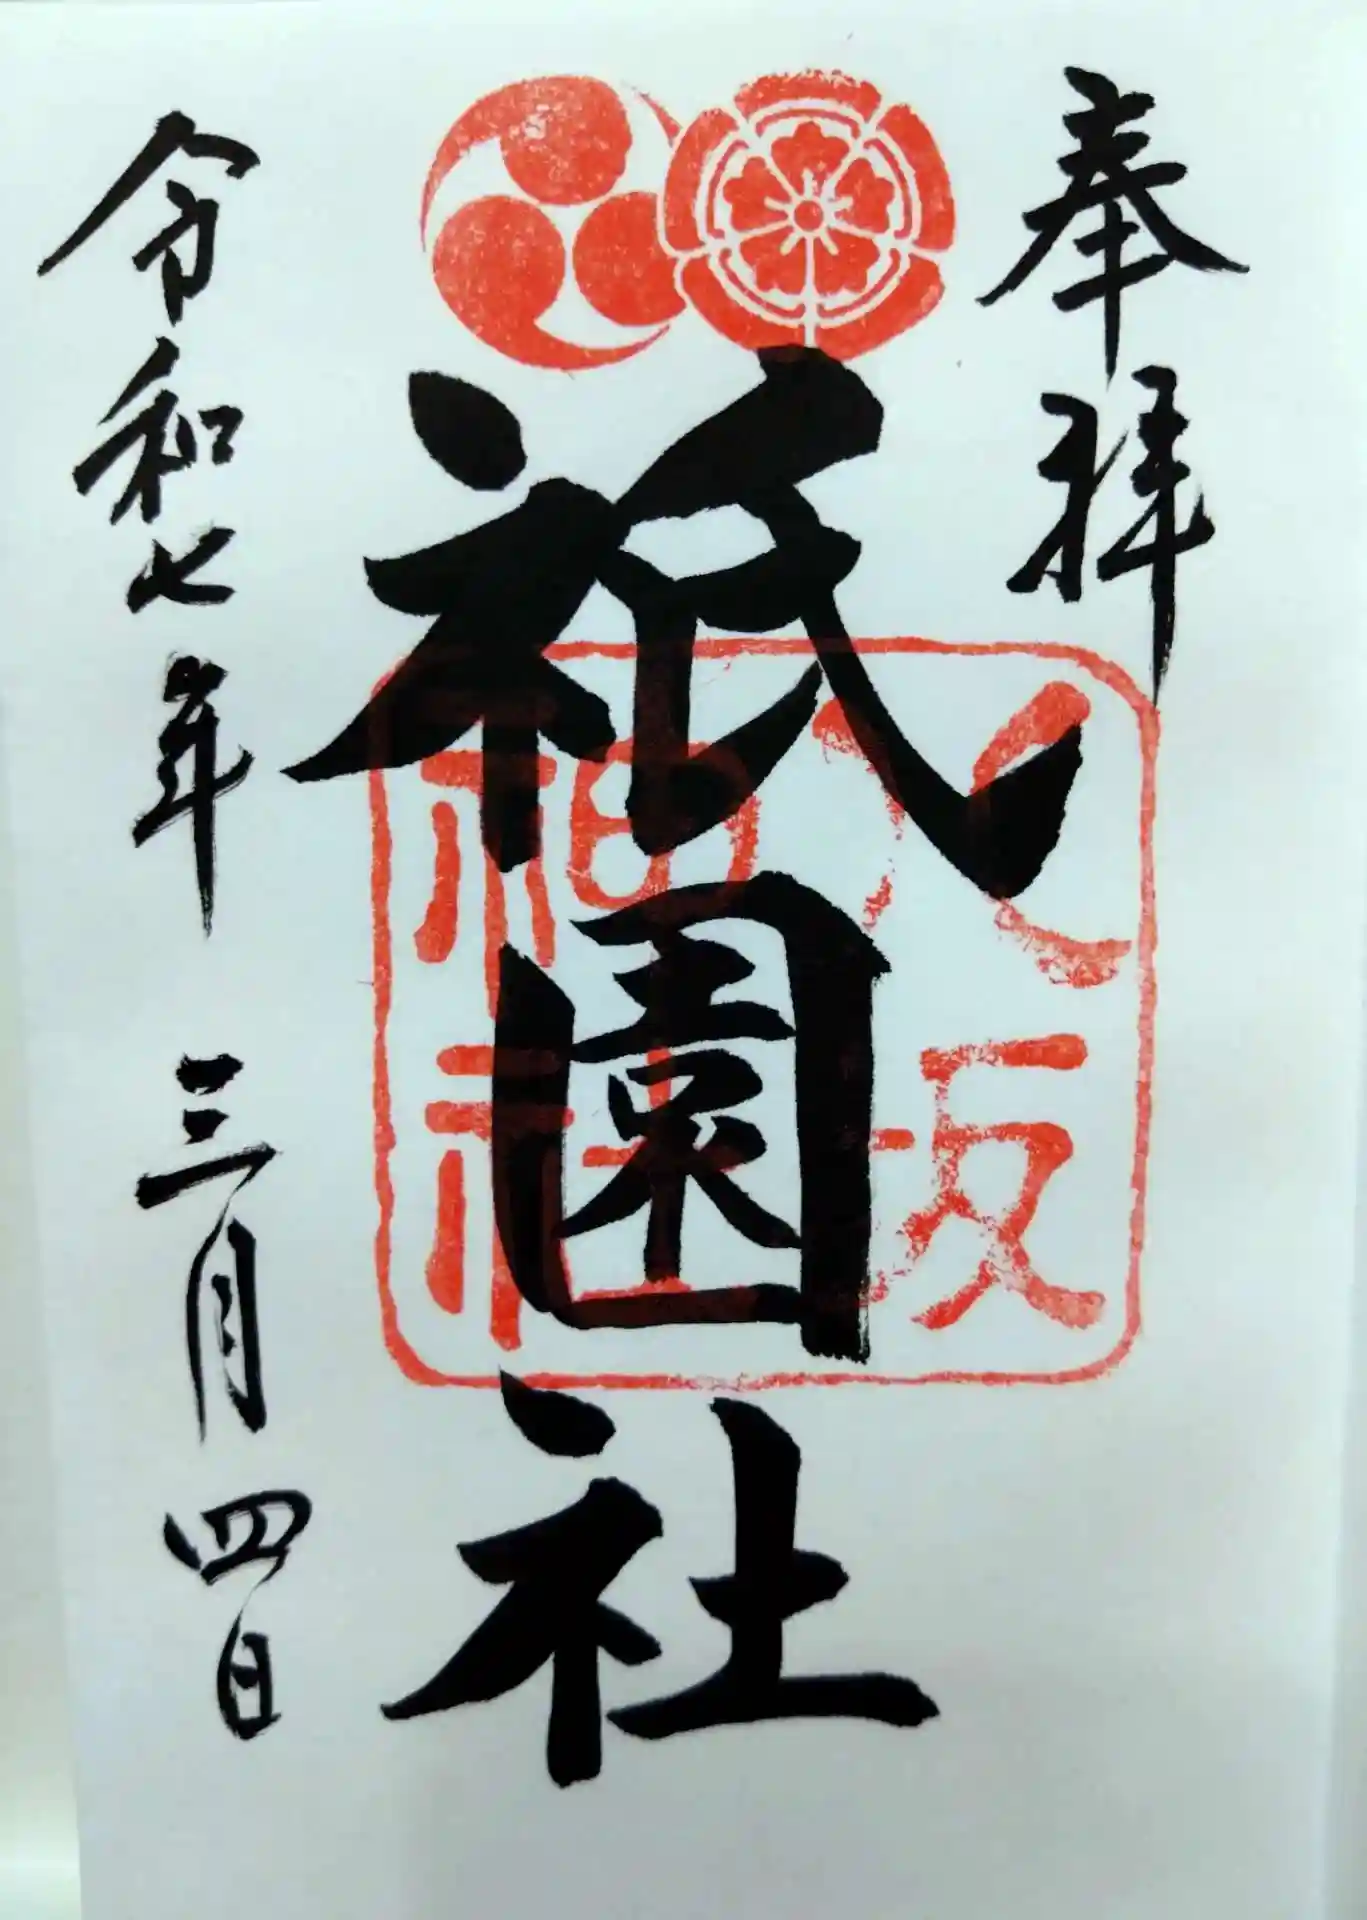 奉拝
八坂
神社
祇園社
令和七年 三月四日